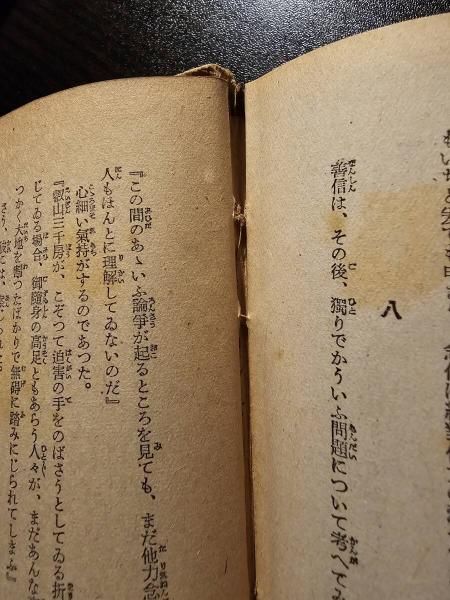 八
善信は、その後、獨りでかういふ問題について考へてみ
『この間のあゝいふ論爭が起るところを見ても、まだ他力念
人もほんとに理解してゐないのだ』
心細い氣持がするのであつた。
『叡山三千房が、こぞつて迫害の手をのばさうとしてゐる折
じてゐる場合、御隨身の高足ともあらう人々が、まだあんな
つかく大地を割つたばかりで無碍に踏みにじられてしまふ』